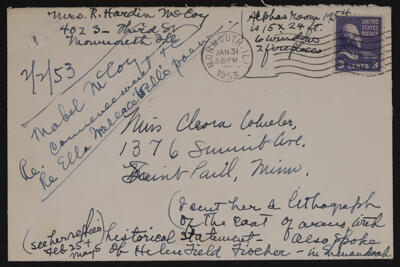 Mrs. R. Hardin McCoy
402 3 - Third St
Monmouth Ill
Alphas room 1954
is 15 x 24 ft.
6 windows
2 fireplaces
MONMOUTH, ILL.
JAN 31
PM
1953
UNITED STATES
POSTAGE
3 CENTS 3
2/2/53
Mabel McCoy
Re: Commencement etc
Re Ella poem
Miss Cleora Wheeler
1376 Summit Ave.
Saint Paul, Minn.
(sent her a lithograph
of the coat of arms, with
historical statement - also spoke
of Helen Field Fischer - in Shenandoah
(see her reply
Feb 25 +